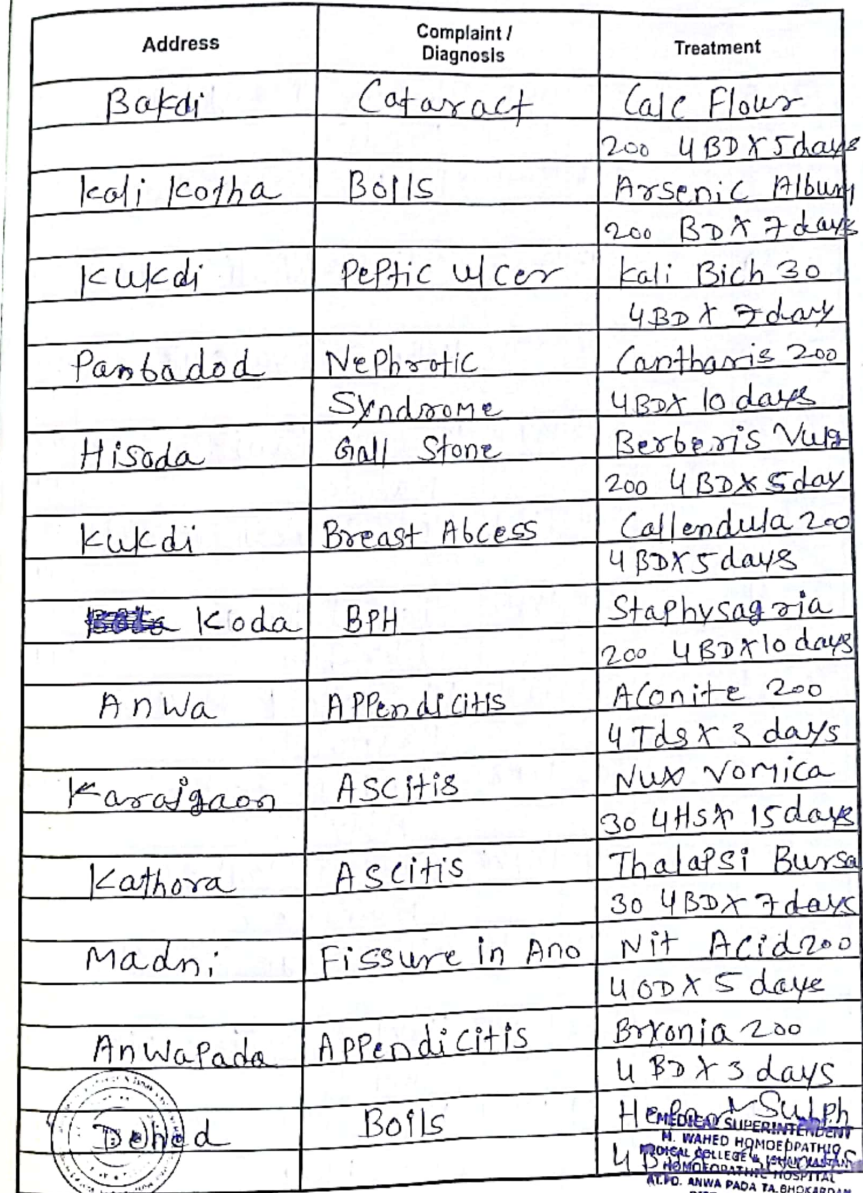 Address Complaint / Diagnosis Treatment
Bakdi Cataract Calc Flour
200 4 BD X 5 days
Kali Kotha Boils Arsenic Album
200 BD X 7 days
Kukdi Peptic ulcer Kali Bich 30
4 BD X 7 day
Panbadod Nephrotic Cantharis 200
Syndrome 4 BD X 10 days
Hisoda Gall Stone Berberis Vulg
200 4 BD X 5 day
Kukdi Breast Abcess Callendula 200
4 BD X 5 days
Koda BPH Staphysagria
200 4 BD X 10 days
Anwa Appendicitis Aconite 200
4 Tds X 3 days
Karajgaon Ascitis Nux Vomica
30 4 HS X 15 days
Kathora Ascitis Thalapsi Bursa
30 4 BD X 7 days
Madni Fissure in Ano Nit Acid 200
4 OD X 5 days
AnwaPada Appendicitis Bryonia 200
4 BD X 3 days
Dehed Boils Hepar Sulph
MEDICAL SUPERINTENDENT
M. WAHED HOMOEOPATHIC
4 B
HOMOEOPATHIC HOSPITAL
AT.PO. ANWA PADA TA. BHOKARDAN